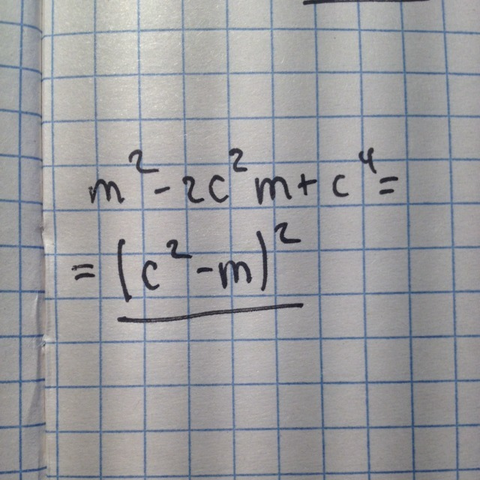 m² - 2c²m + c⁴ =
= (c² - m)²